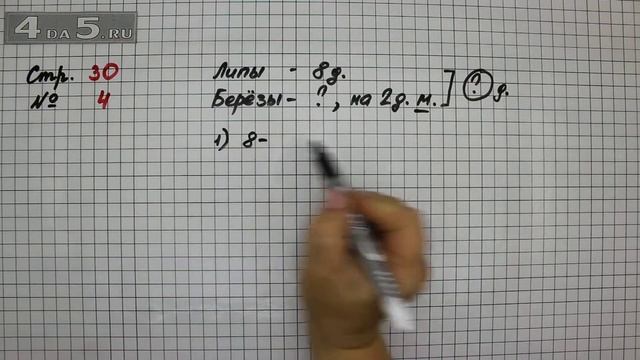 4DA5.RU
Стр. 30
№ 4
Липы - 8д.
Берёзы - ?, на 2д. м. ] ? д.
1) 8-